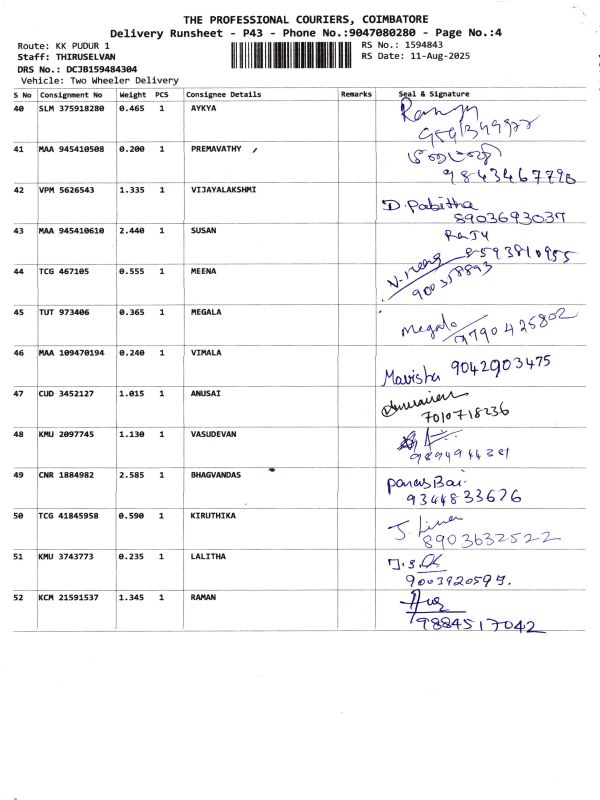 THE PROFESSIONAL COURIERS, COIMBATORE
Delivery Runsheet - P43 - Phone No.:9047080280 - Page No.:4
Route: KK PUDUR 1
RS No.: 1594843
Staff: THIRUSELVAN
RS Date: 11-Aug-2025
DRS No.: DCJB159484304
Vehicle: Two Wheeler Delivery
S No Consignment No Weight PCS Consignee Details Remarks Seal & Signature
40 SLM 375918280 0.465 1 AYKYA
41 MAA 945410508 0.200 1 PREMAVATHY
9843467790
42 VPM 5626543 1.335 1 VIJAYALAKSHMI
D. Pabitha
8903693037
43 MAA 945410610 2.440 1 SUSAN
RaJu
8593810955
44 TCG 467105 0.555 1 MEENA
45 TUT 973406 0.365 1 MEGALA
Megala
9790425802
46 MAA 109470194 0.240 1 VIMALA
Mavisha 9042903475
47 CUD 3452127 1.015 1 ANUSAI
7010718236
48 KMU 2097745 1.130 1 VASUDEVAN
49 CNR 1884982 2.585 1 BHAGVANDAS
Paras Bai
9344833676
50 TCG 41845958 0.590 1 KIRUTHIKA
8903632522
51 KMU 3743773 0.235 1 LALITHA
9003920597.
52 KCM 21591537 1.345 1 RAMAN
9884517042